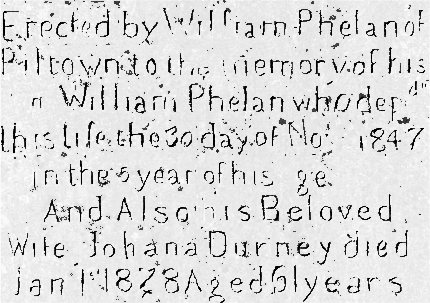 Erected by William Phelan of
Piltown to the memory of his
William Phelan who dep
this life the 30 day of No 1847
in the year of his ge
And Also his Beloved
Wife Johana Durney died
Jan 1 1878 Aged 61 years